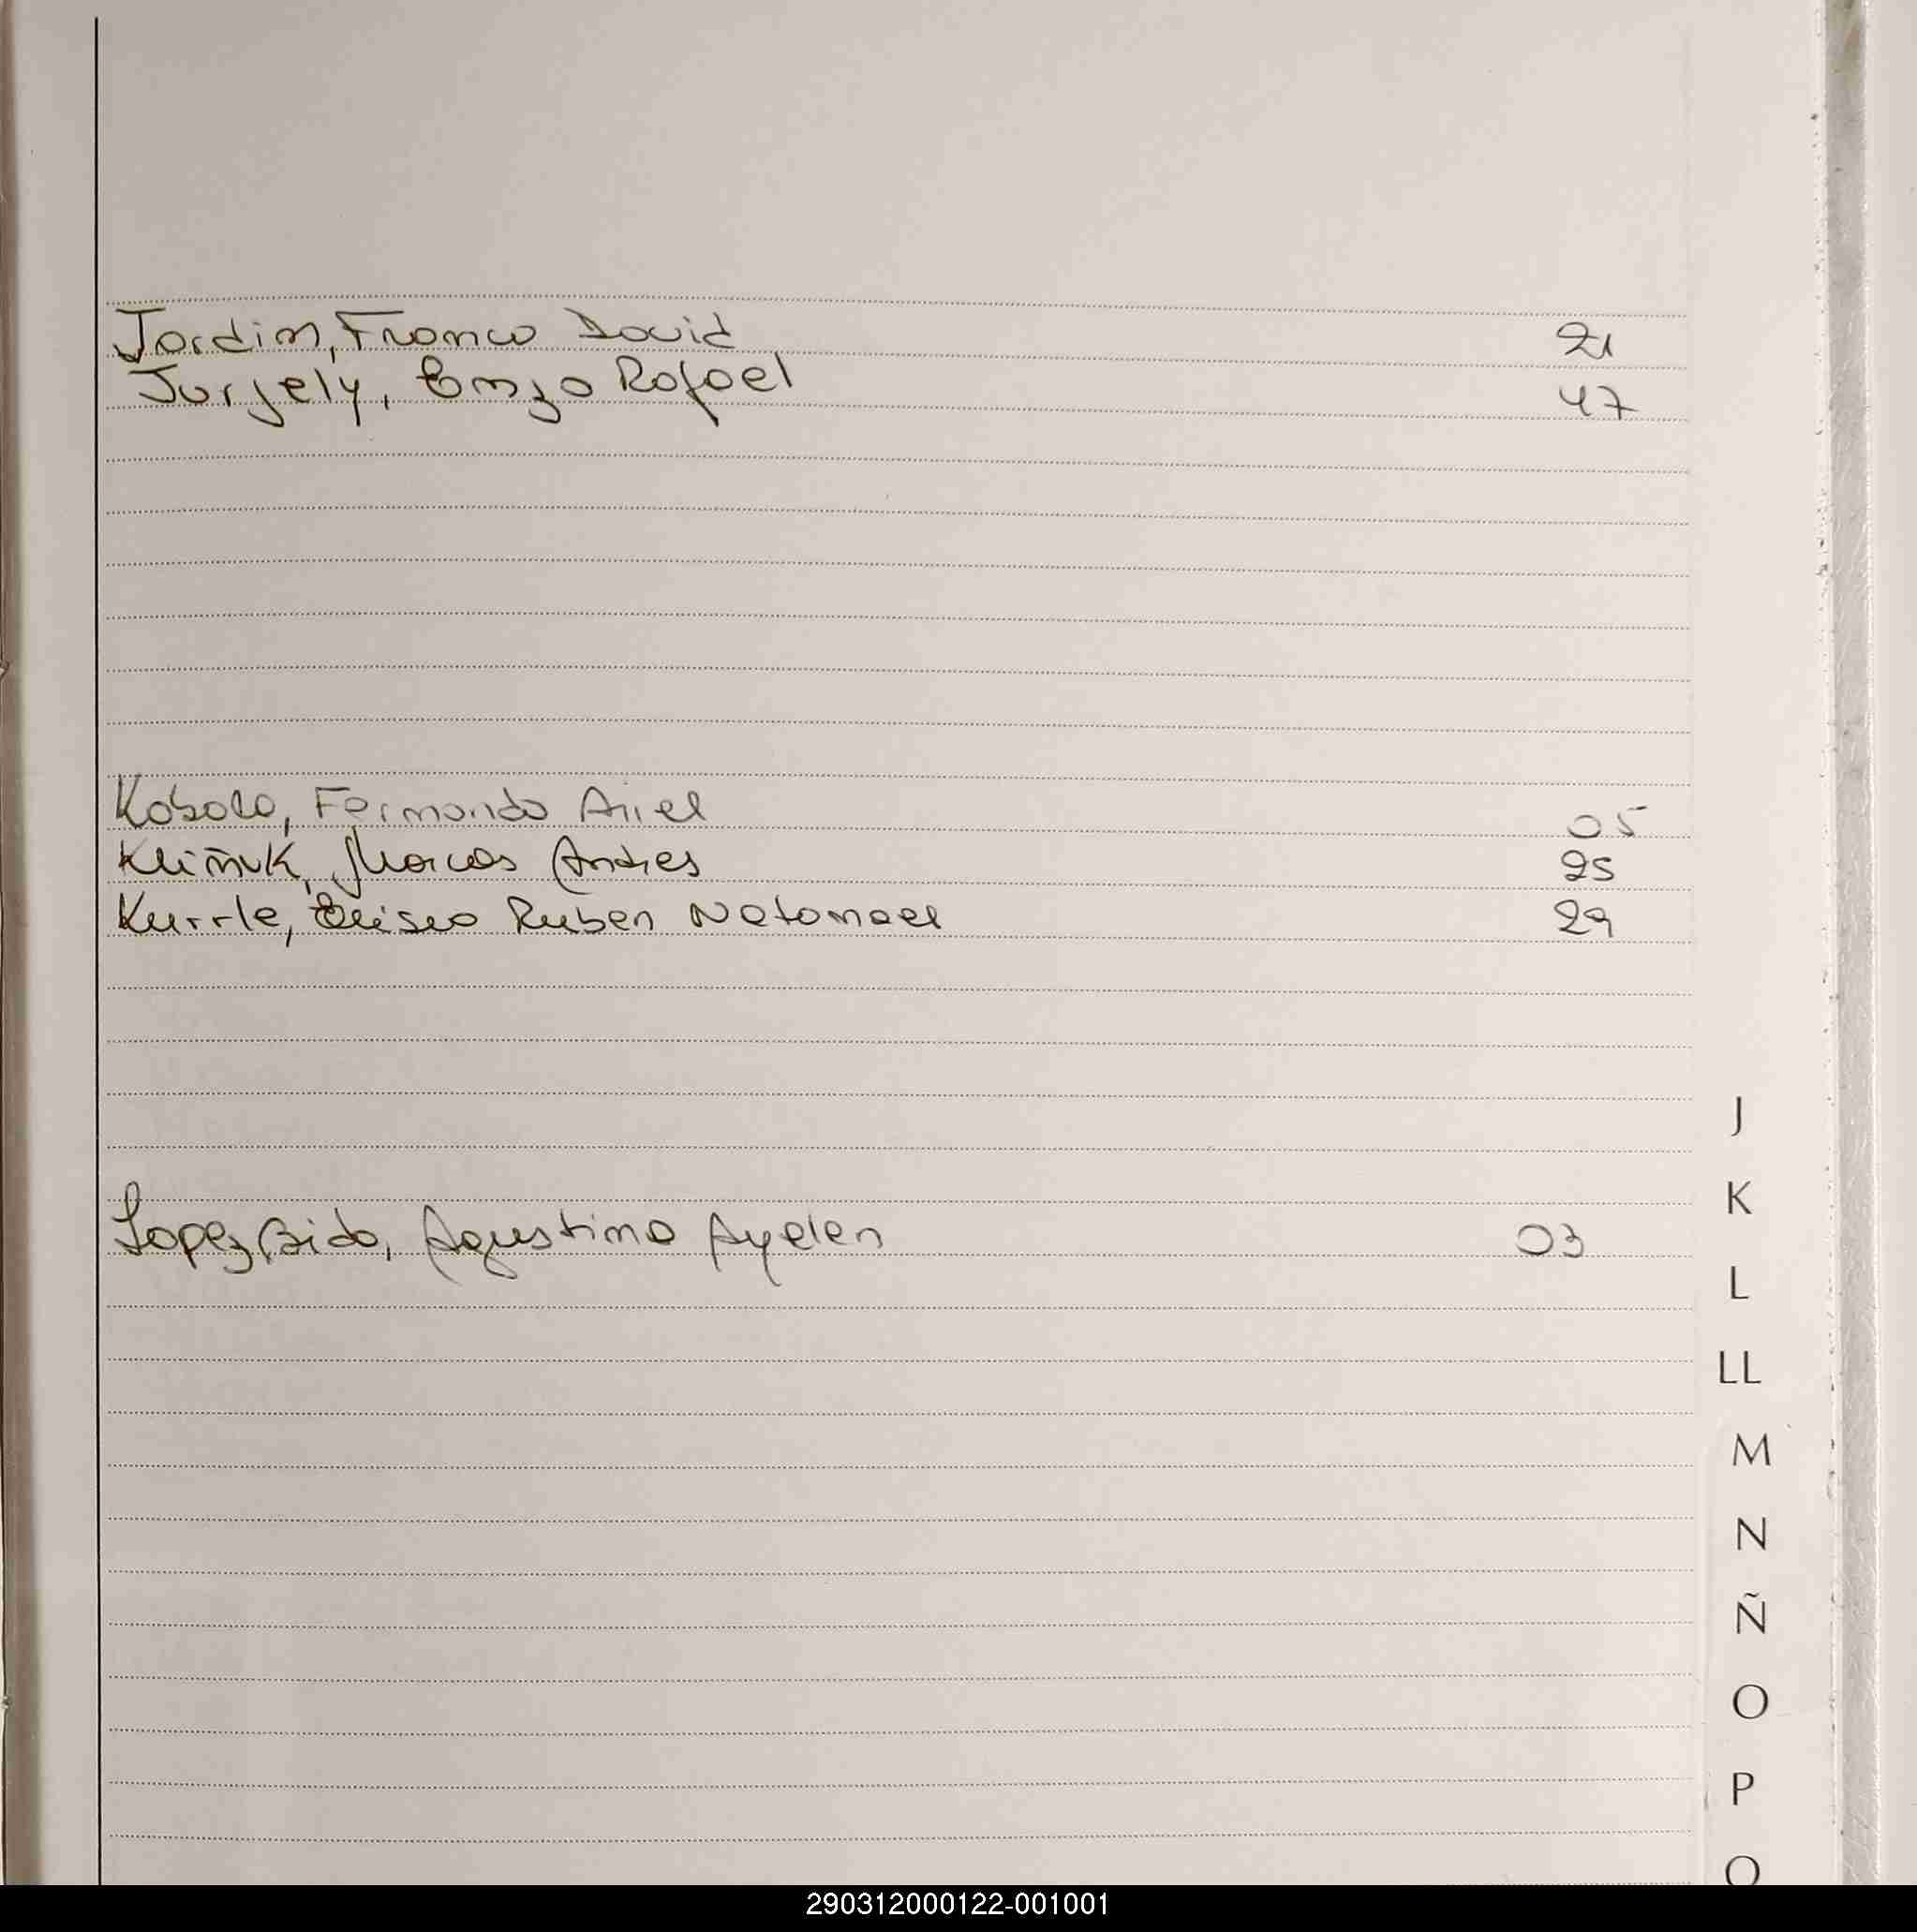 Jardim, Franco David 21
Jurjely, Enzo Rafael 47
Kobolo, Fernando Ariel 05
Kliñuk, Marcos Andres 25
Kurrle, Eliseo Ruben Natanael 29
Lopez Bido, Agustina Ayelen 03
J
K
L
LL
M
N
Ñ
O
P
Q
290312000122-001001